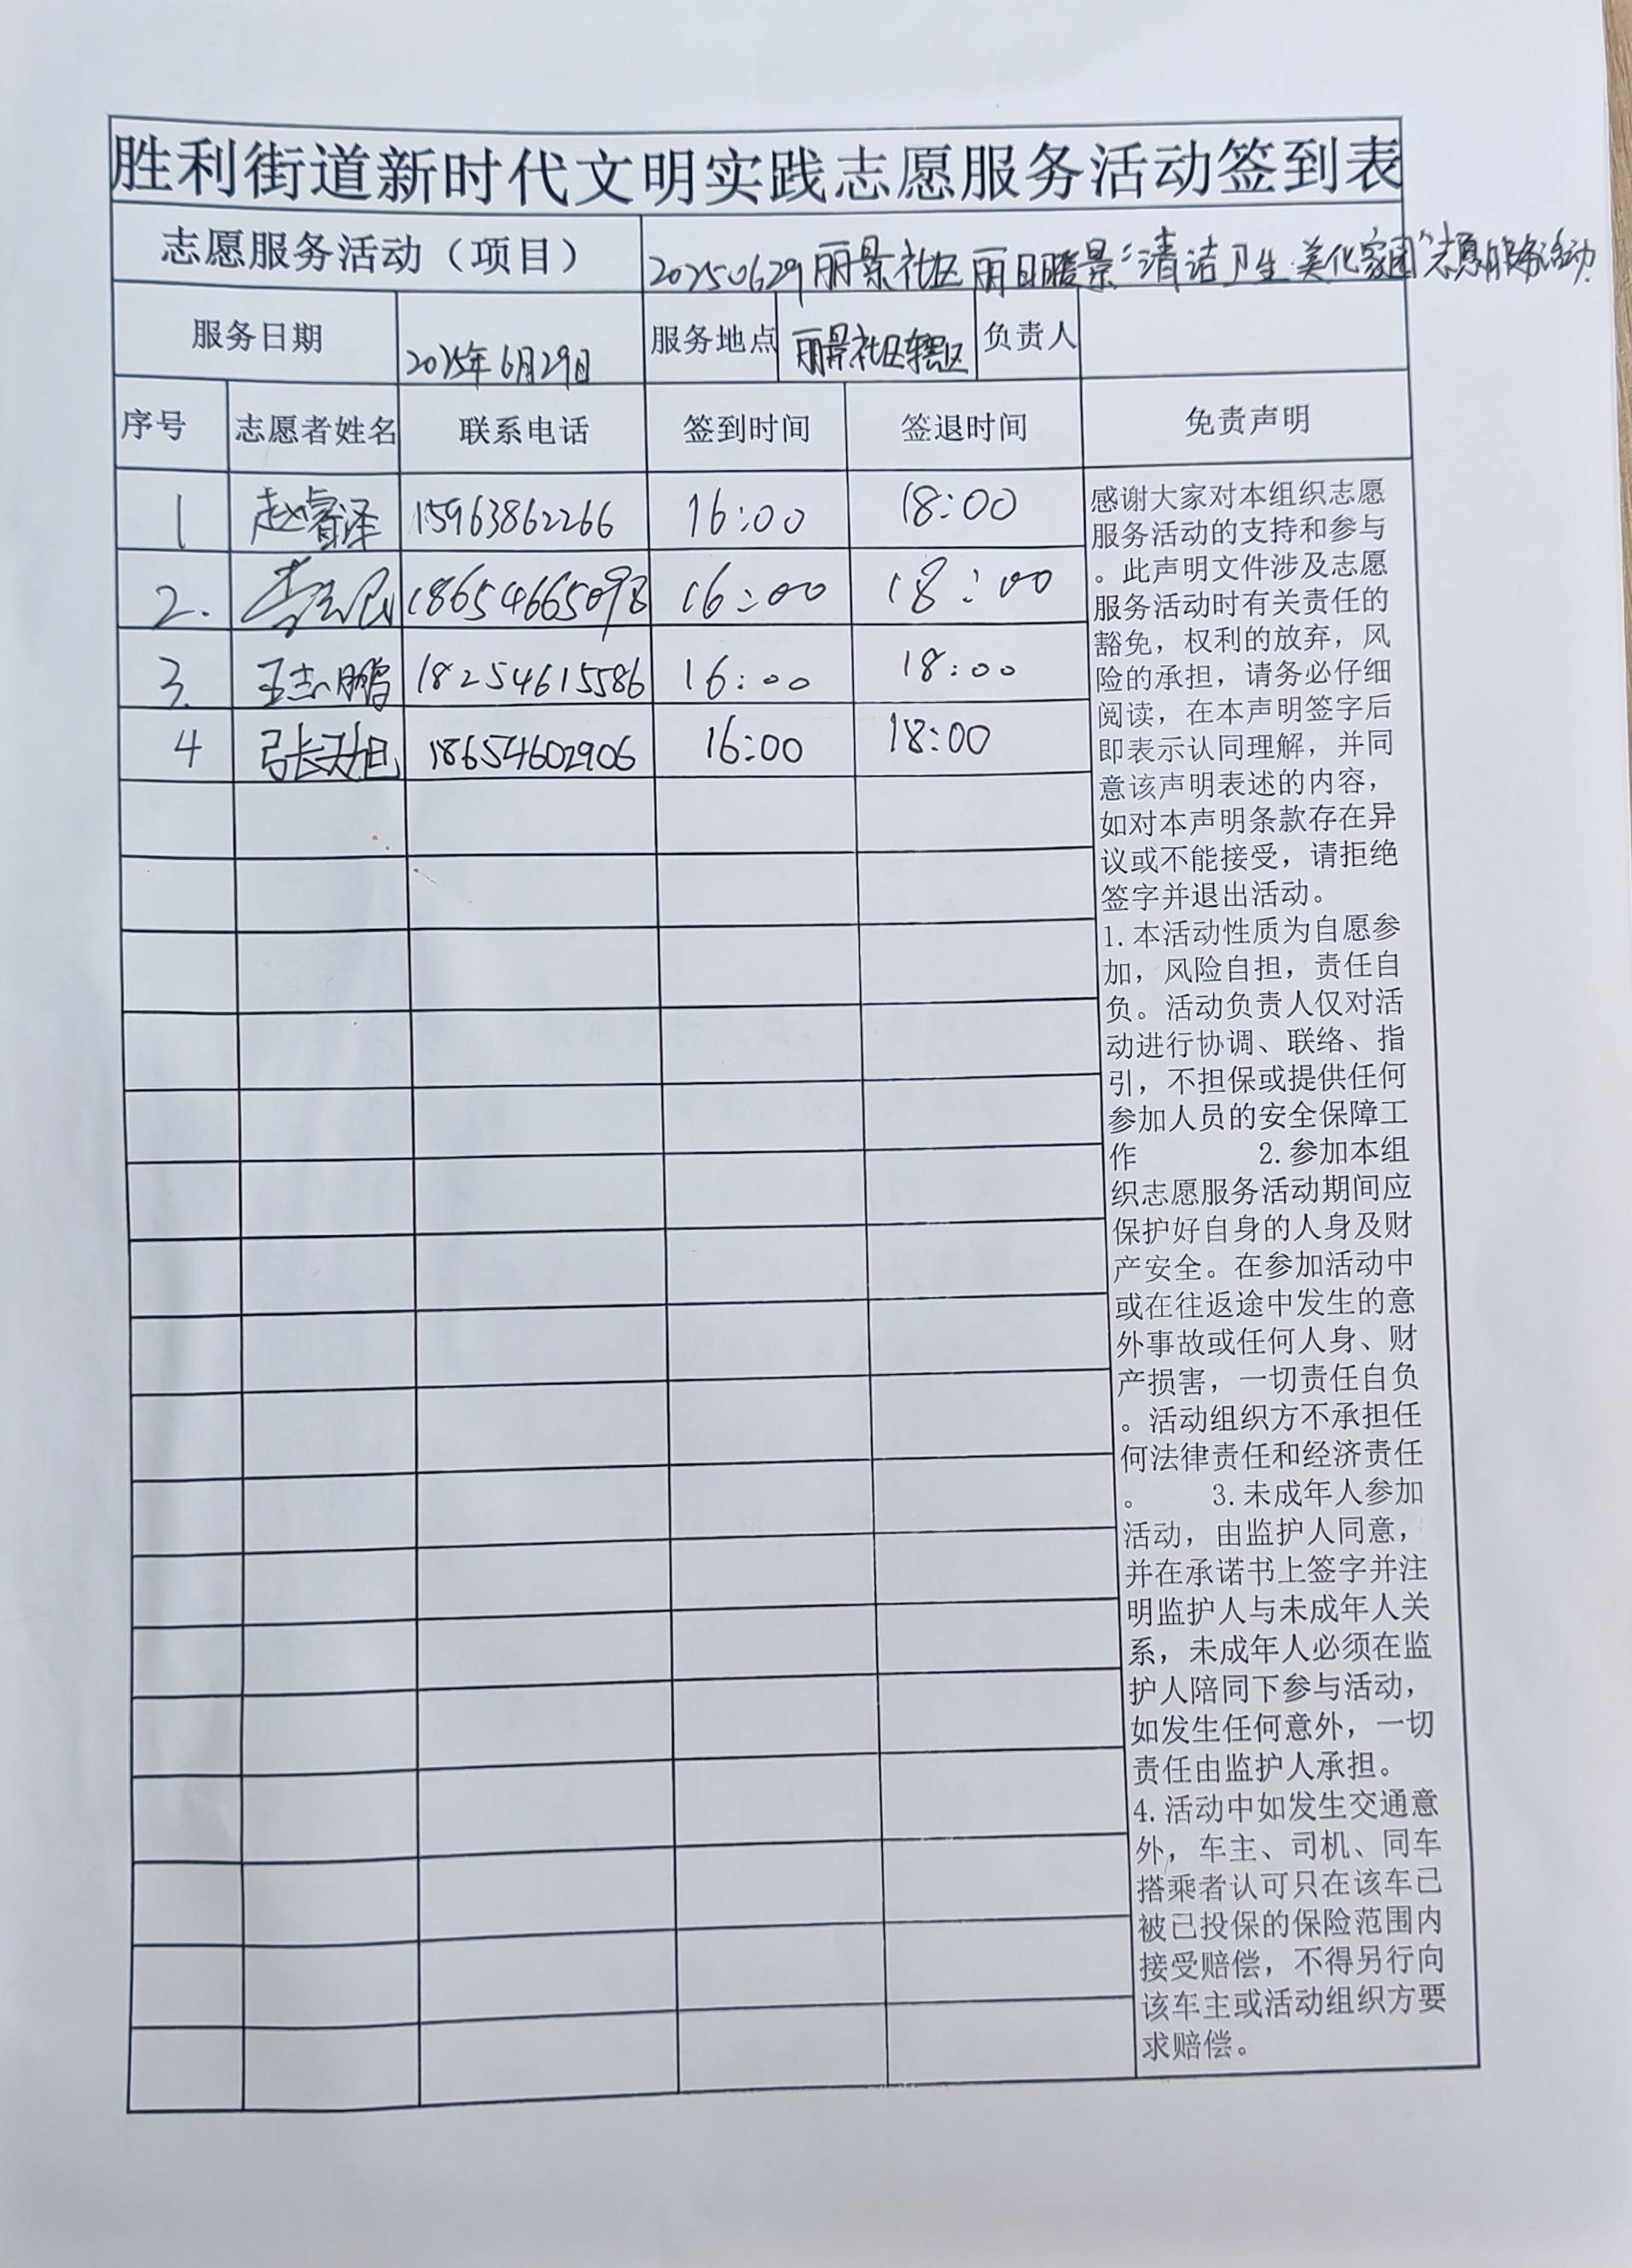 胜利街道新时代文明实践志愿服务活动签到表
志愿服务活动（项目） 20250629丽景社区丽日暖景“清洁卫生 美化家园”志愿服务活动.
服务日期 2025年6月29日 服务地点 丽景社区辖区 负责人
序号 志愿者姓名 联系电话 签到时间 签退时间 免责声明
1 赵睿泽 15963862266 16:00 18:00
2. 18654665098 16:00 18:00
3. 王志鹏 18254615586 16:00 18:00
4 张天旭 18654602906 16:00 18:00
感谢大家对本组织志愿
服务活动的支持和参与
。此声明文件涉及志愿
服务活动时有关责任的
豁免，权利的放弃，风
险的承担，请务必仔细
阅读，在本声明签字后
即表示认同理解，并同
意该声明表述的内容，
如对本声明条款存在异
议或不能接受，请拒绝
签字并退出活动。
1.本活动性质为自愿参
加，风险自担，责任自
负。活动负责人仅对活
动进行协调、联络、指
引，不担保或提供任何
参加人员的安全保障工
作 2.参加本组
织志愿服务活动期间应
保护好自身的人身及财
产安全。在参加活动中
或在往返途中发生的意
外事故或任何人身、财
产损害，一切责任自负
。活动组织方不承担任
何法律责任和经济责任
。 3.未成年人参加
活动，由监护人同意，
并在承诺书上签字并注
明监护人与未成年人关
系，未成年人必须在监
护人陪同下参与活动，
如发生任何意外，一切
责任由监护人承担。
4.活动中如发生交通意
外，车主、司机、同车
搭乘者认可只在该车已
被已投保的保险范围内
接受赔偿，不得另行向
该车主或活动组织方要
求赔偿。